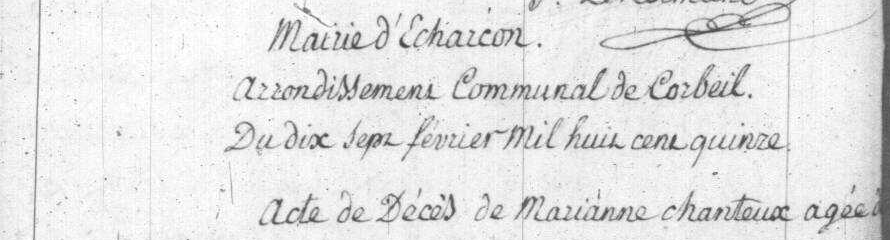 Mairie d'Echarcon.
Arrondissement Communal de Corbeil.
Du dix sept février Mil huit cent quinze.
Acte de Décès de Marianne chanteux agée